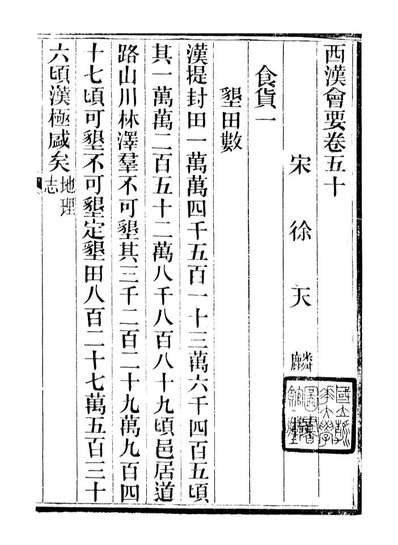 西漢會要卷五十
宋徐天麟
食貨一
墾田數
漢提封田一萬萬四千五百一十三萬六千四百五頃
其一萬萬二百五十二萬八千八百八十九頃邑居道
路山川林澤羣不可墾其三千二百二十九萬九百四
十七頃可墾不可墾定墾田八百二十七萬五百三十
六頃漢極盛矣地理
志